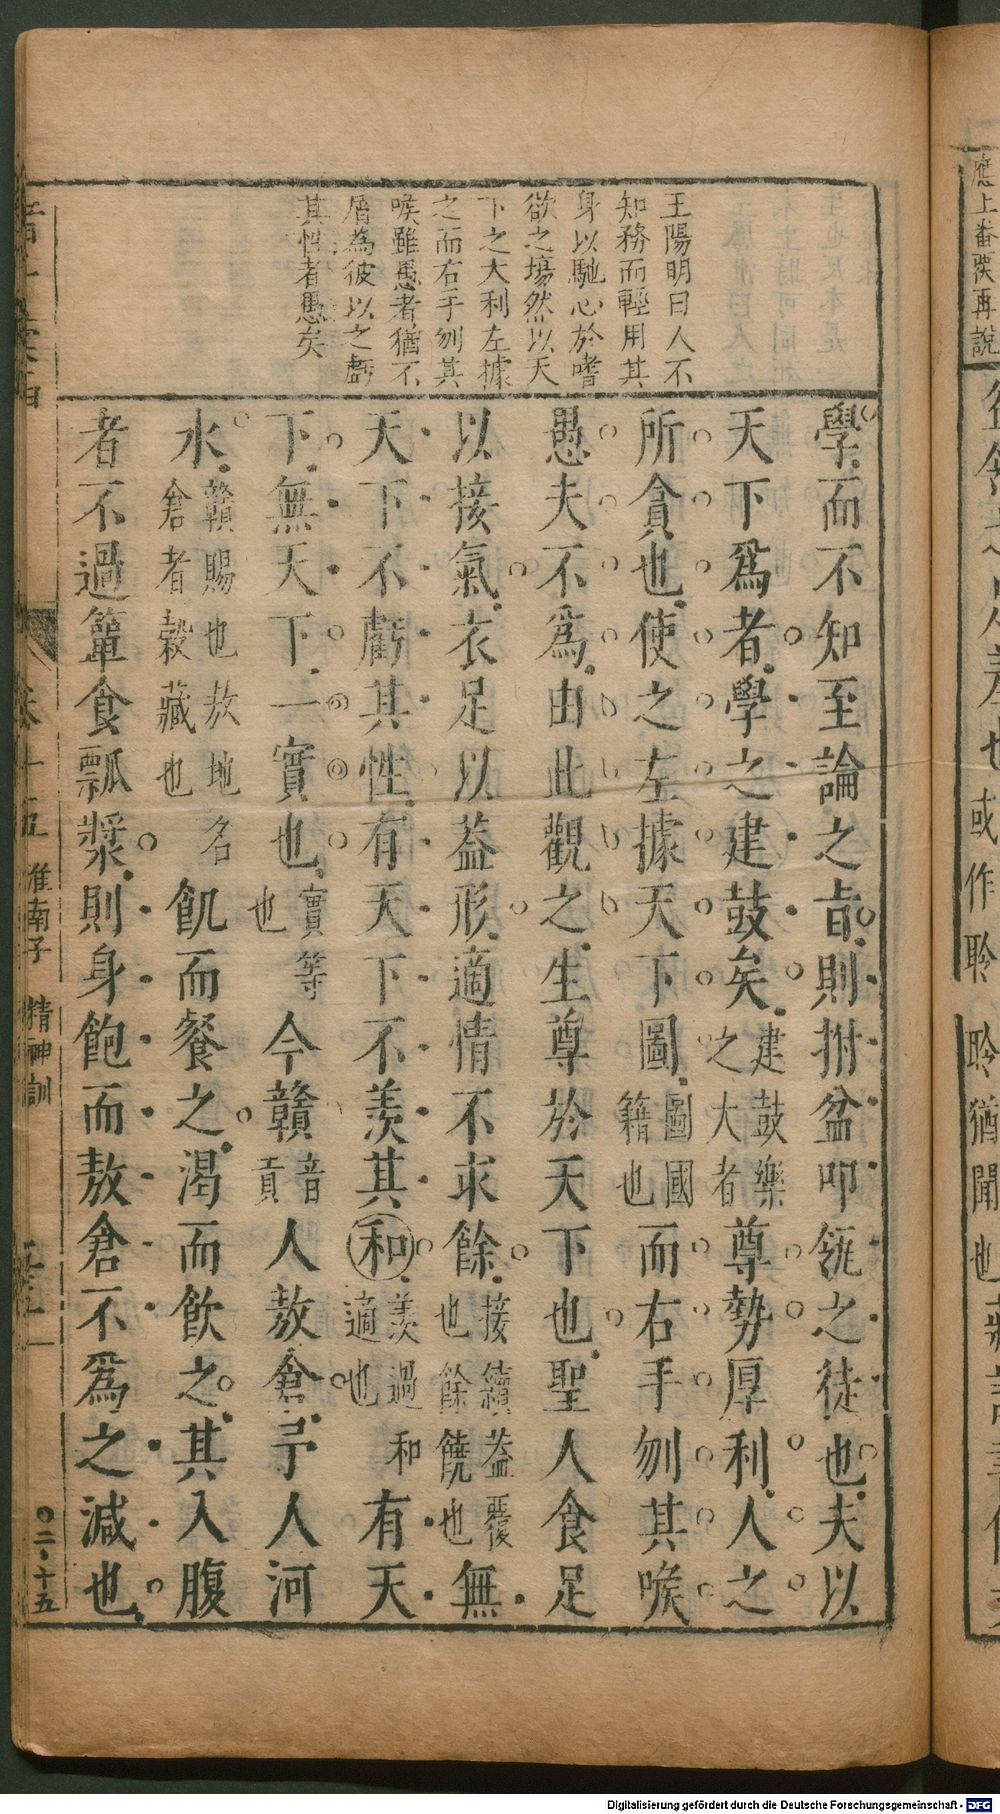 王陽明曰人不
知務而輕用其
身以馳心於嗜
欲之塲然以天
下之大利左據
之而右手刎其
喉雖愚者猶不
屑為彼以之虧
其性者愚矣
學而不知至論之旨則拊盆叩瓴之徒也夫以
天下爲者學之建鼓矣建鼓樂之大者尊勢厚利人之
所貪也使之左據天下圖圖國籍也而右手刎其喉
愚夫不爲由此觀之生尊於天下也聖人食足
以接氣衣足以葢形適情不求餘接續葢覆也餘饒也無
天下不虧其性有天下不羨其和羨過和適也有天
下無天下一實也實等也今贛音貢人敖倉予人河
水贛賜也敖地名倉者穀藏也飢而餐之渴而飲之其入腹
者不過簞食瓢漿則身飽而敖倉不爲之減也
卷十五
淮南子
精神訓
〇二十五
應上
再說
或作聆
聆猶聞也
Digitalisierung gefördert durch die Deutsche Forschungsgemeinschaft - DFG